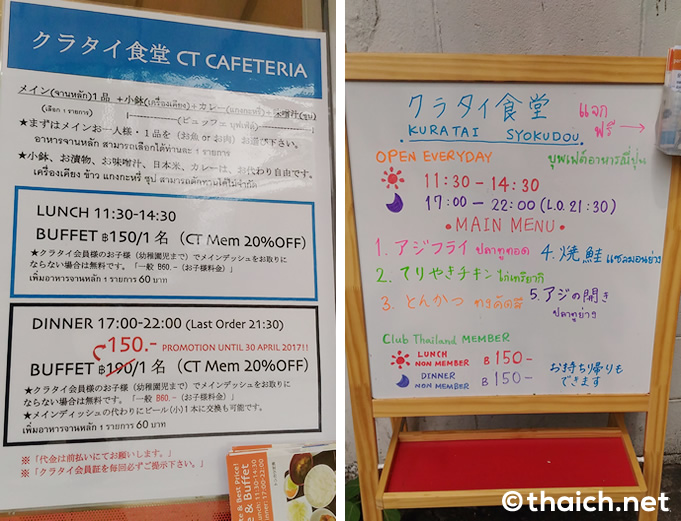 クラタイ食堂 CT CAFETERIA
メイン(จานหลัก)1品 +小鉢(เครื่องเคียง)+カレー(แกงกะหรี่)+味噌汁(ซุป)
(เลือก 1 รายการ) (ビュッフェ บุฟเฟ่ต์)
★まずはメインお一人様・1品を(お魚 or お肉)お選び下さい。
อาหารจานหลัก สามารถเลือกได้ท่านละ 1 รายการ
★小鉢、お漬物、お味噌汁、日本米、カレーは、お代わり自由です。
เครื่องเคียง ข้าว แกงกะหรี่ ซุป สามารถตักทานได้ไม่จำกัด
LUNCH 11:30-14:30
BUFFET ฿150/1 名 (CT Mem 20%OFF)
★クラタイ会員様のお子様(幼稚園児まで)でメインデッシュをお取りに
ならない場合は無料です。「一般 B60.-(お子様料金)」
เพิ่มอาหารจานหลัก 1 รายการ 60 บาท
DINNER 17:00-22:00 (Last Order 21:30)
150.- PROMOTION UNTIL 30 APRIL 2017!!
BUFFET ฿190/1 名 (CT Mem 20%OFF)
★クラタイ会員様のお子様(幼稚園児まで)でメインデッシュをお取りに
ならない場合は無料です。「一般 B60.-(お子様料金)」
★メインディッシュの代わりにビール(小)1本に交換も可能です。
เพิ่มอาหารจานหลัก 1 รายการ 60 บาท
※「代金は前払いにてお願いします。」
※「クラタイ会員証を毎回必ずご提示下さい。」
te & Best Price!
& Buffet
nch: 11:30-14:30
Dinner: 17:00-22:00
e & Buffet
クラタイ食堂
KURATAI SYOKUDOU
แจก
ฟรี →
OPEN EVERYDAY
บุฟเฟ่ต์อาหารญี่ปุ่น
11:30 - 14:30
17:00 - 22:00 (L.O. 21:30)
• MAIN MENU •
1. アジフライ ปลาทูทอด
4. 焼鮭 แซลมอนย่าง
2. てりやきチキン ไก่เทริยากิ
3. とんかつ ทงคัตสึ
5. アジの開き
ปลาทูย่าง
Club Thailand MEMBER
LUNCH
NON MEMBER ฿ 150-
DINNER
NON MEMBER ฿ 150-
お持ち帰りも
できます
©thaich.net